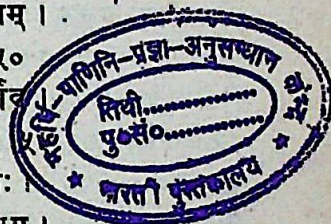 म् ।
र०
महर्षि-पाणिनि-प्रज्ञा-अनुसन्धान
तिथी...............
पु०सं०...............
भारती पुस्तकालय
ः ।